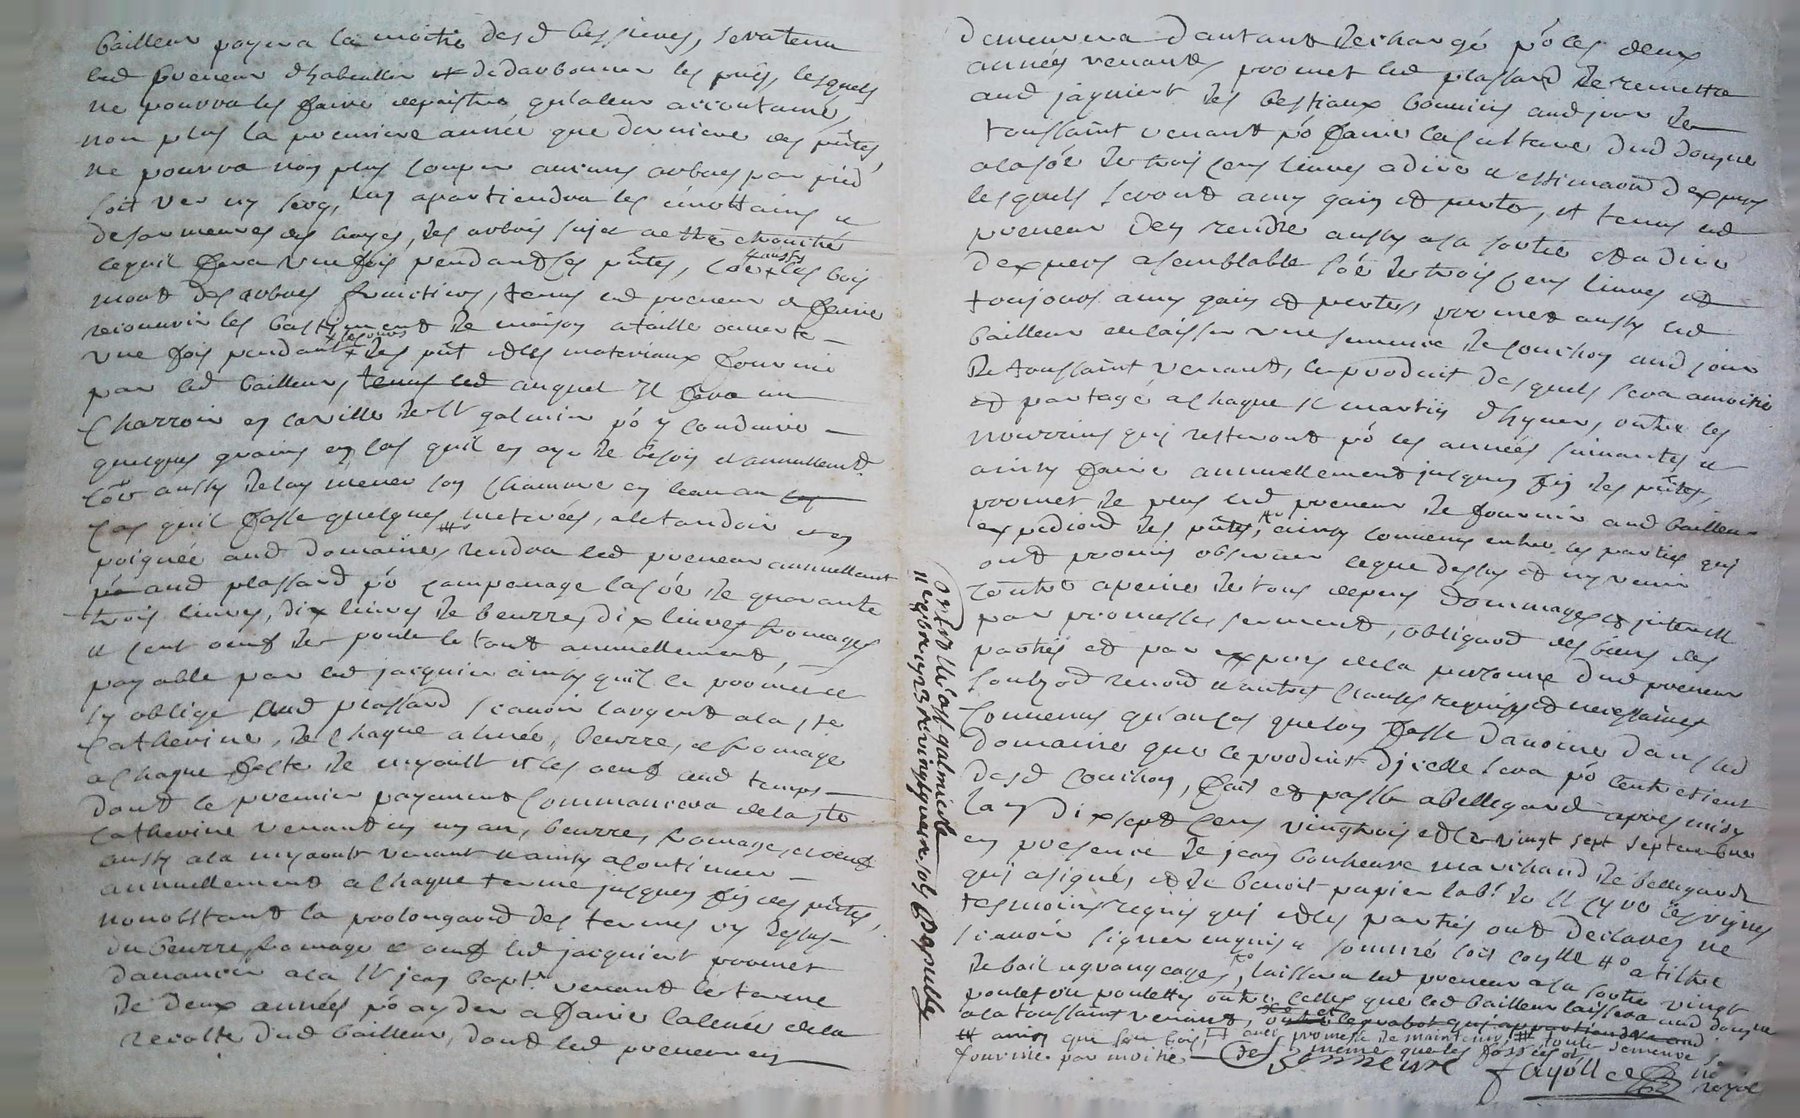 bailleur payera la moitié desd bessieres, sera tenu
led preneur d'habeiller et de darbonner les prés, lesquels
ne pourra les faire depaistre qu'a leur accoutumé,
non plus la premiere année que derniere des pntes,
ne pourra non plus couper aucuns arbres par pied
soit ver ny secq, luy apartiendra les
des hayes, les arbres sujet a etre
lequil fera une fois pendant ses pntes, les bois
mort des arbres fruictiers, tenus led preneur de faire
recouvrir les bastiment de maison a taille ouverte
une fois pendant les pnt et les materiaux fournie
par led bailleur, tenus led auquel il fera un
charroir en la ville de St galmier po y conduire
quelques grains en cas quil en aye de besoin et annuellemt
come aussy de luy mener son chamvre en leau au
cas quil fasse quelques metures, a letandoir
poignée aud domaine, rendra led preneur annuellement
aud plassard po campenage la soe de quarante
trois livres, dix livres de beurre, dix livres fromages
et cent oeufs de poule le tout annuellement,
payable par led jacquier ainsy quil le promet et
sy oblige aud plassard scavoir largent a la ste
Catherine, de chaque année, beurre, et fromage
a chaque feste de myaoust et les oeufs aud temps
dont le premier payement commancera de la ste
Catherine venant en un an, beurre, fromage, et oeufs
aussy a la myaoust venant et ainsy a continuer
annuellement a chaque terme jusques fin des pntes,
nonobstant la prolongaon des termes cy dessus
du beurre fromage et oeufs led jacquiert promet
davancer a la St jean bapt. venant le terme
de deux années po ayder a faire la levée de la
recolte dud bailleur, dont led preneur en
demeurera d'autant dechargé po les deux
années venants, promet led plassard de remettre
aud jaquiert des bestiaux bouvins aud jour de
toussaint venant po faire la culture dud domaine
a la soe de trois cens livres a dire et estimaon d'expers
lesquels seront a my gain et perte, et tenus led
preneur d'en rendre aussy a sa sortie et a dire
d'expers a semblable soe de trois cens livres et
toujours a my gain et pertes, promet aussy led
bailleur de laisser une semence de couchon aud jour
de toussaint venant, le produit desquels sera a moitié
et partagé a chaque St martin d'hyver, outre les
nourrins qui resteront po les années suivantes et
ainsy faire annuellement jusques fin des pntes,
promet de plus led preneur de fournir aud bailleur
expedion des pntes, ainsy convenu entre les parties qui
ont promis observer ce que dessus et ny venir
contre a peine de tous depens dommages et interest
par promesse serment, obligaon des biens des
parties et par expres de la personne dud preneur
soubz renon et autres clauses requises et necessaires
convenus qu'au cas que lon fasse d'avoine dans led
domaine que le produit d'icelle sera po lentretient
desd couchon, fait et passé a Bellegard apres midy
lan dix sept cens vingtrois et le vingt sept septembre
en presence de jean bonheure marchand de bellegard
qui a signé, et de benoit papier lab. de St cyr les vignes
tesmoins requis qui et les parties ont declarez ne
scavoir signer enquis et sommé
de bail a grangeage, laissera led preneur a sa sortie vingt
poulet ou poulettes outre celles que led bailleur laissera aud domaine
a la toussaint venant,
ainsy que son bois avec promesse de maintenir toute
fournie par moitié meme que les fossés et
Bonneure fayolle no royal
Controllé a St galmier le
11 8bre 1723 Rx vingt quatre sols Dapuille